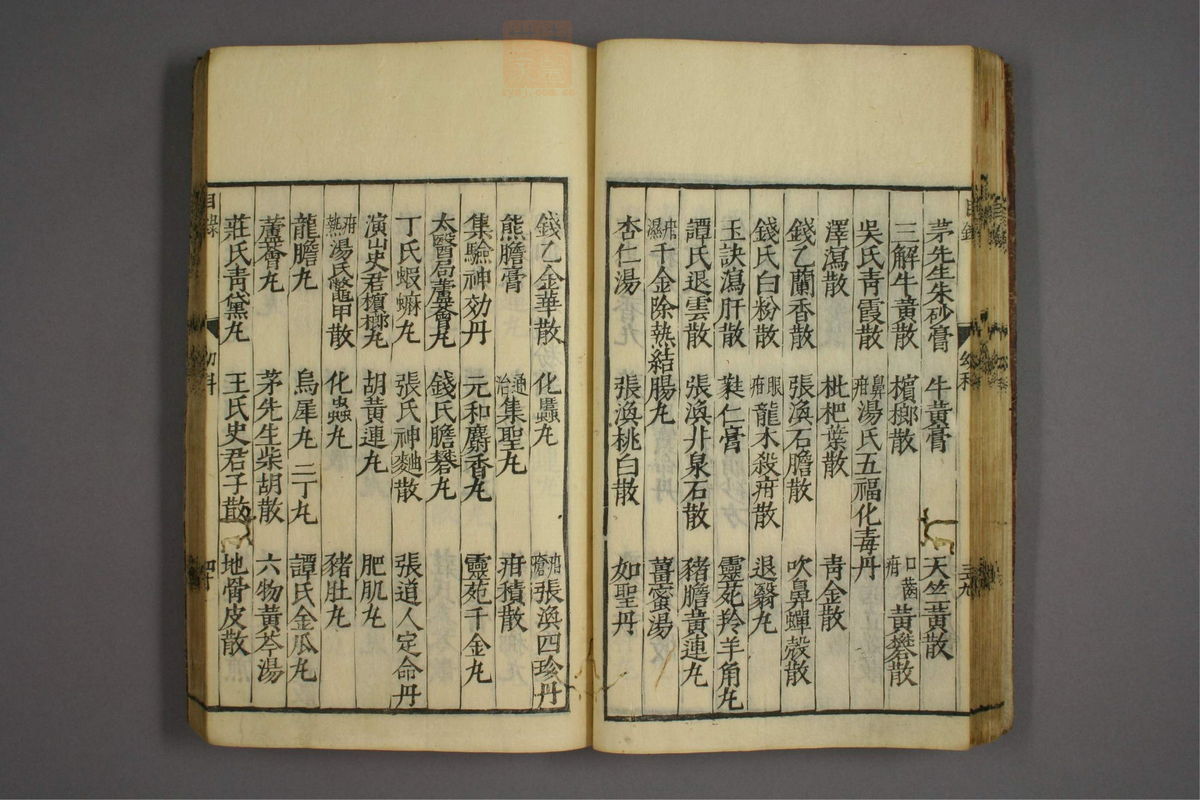 茅先生朱砂膏 牛黃膏 天竺黃散
三解牛黃散 檳榔散 口齒疳黃礬散
吳氏靑霞散 鼻疳湯氏五福化毒丹
澤瀉散 枇杷葉散 靑金散
錢乙蘭香散 張渙石膽散 吹鼻蟬殼散
錢氏白粉散 眼疳龍木殺疳散 退翳丸
玉訣瀉肝散 蕤仁膏 靈苑羚羊角丸
譚氏退雲散 張渙井泉石散 豬膽黃連丸
疳濕千金除熱結腸丸 薑蜜湯
杏仁湯 張渙桃白散 如聖丹
錢乙金華散 化䘌丸 疳瘡張渙四珍丹
熊膽膏 通治集聖丸 疳積散
集驗神効丹 元和麝香丸 靈苑千金丸
太醫局蘆薈丸 錢氏膽礬丸
丁氏蝦蟆丸 張氏神麯散 張道人定命丹
演山史君檳榔丸 胡黃連丸 肥肌丸
疳熱湯氏鱉甲散 化蟲丸 豬肚丸
龍膽丸 烏犀丸 二丁丸 譚氏金瓜丸
蘆薈丸 茅先生柴胡散 六物黃芩湯
莊氏靑黛丸 王氏史君子散 地骨皮散
目錄 幼科 四十